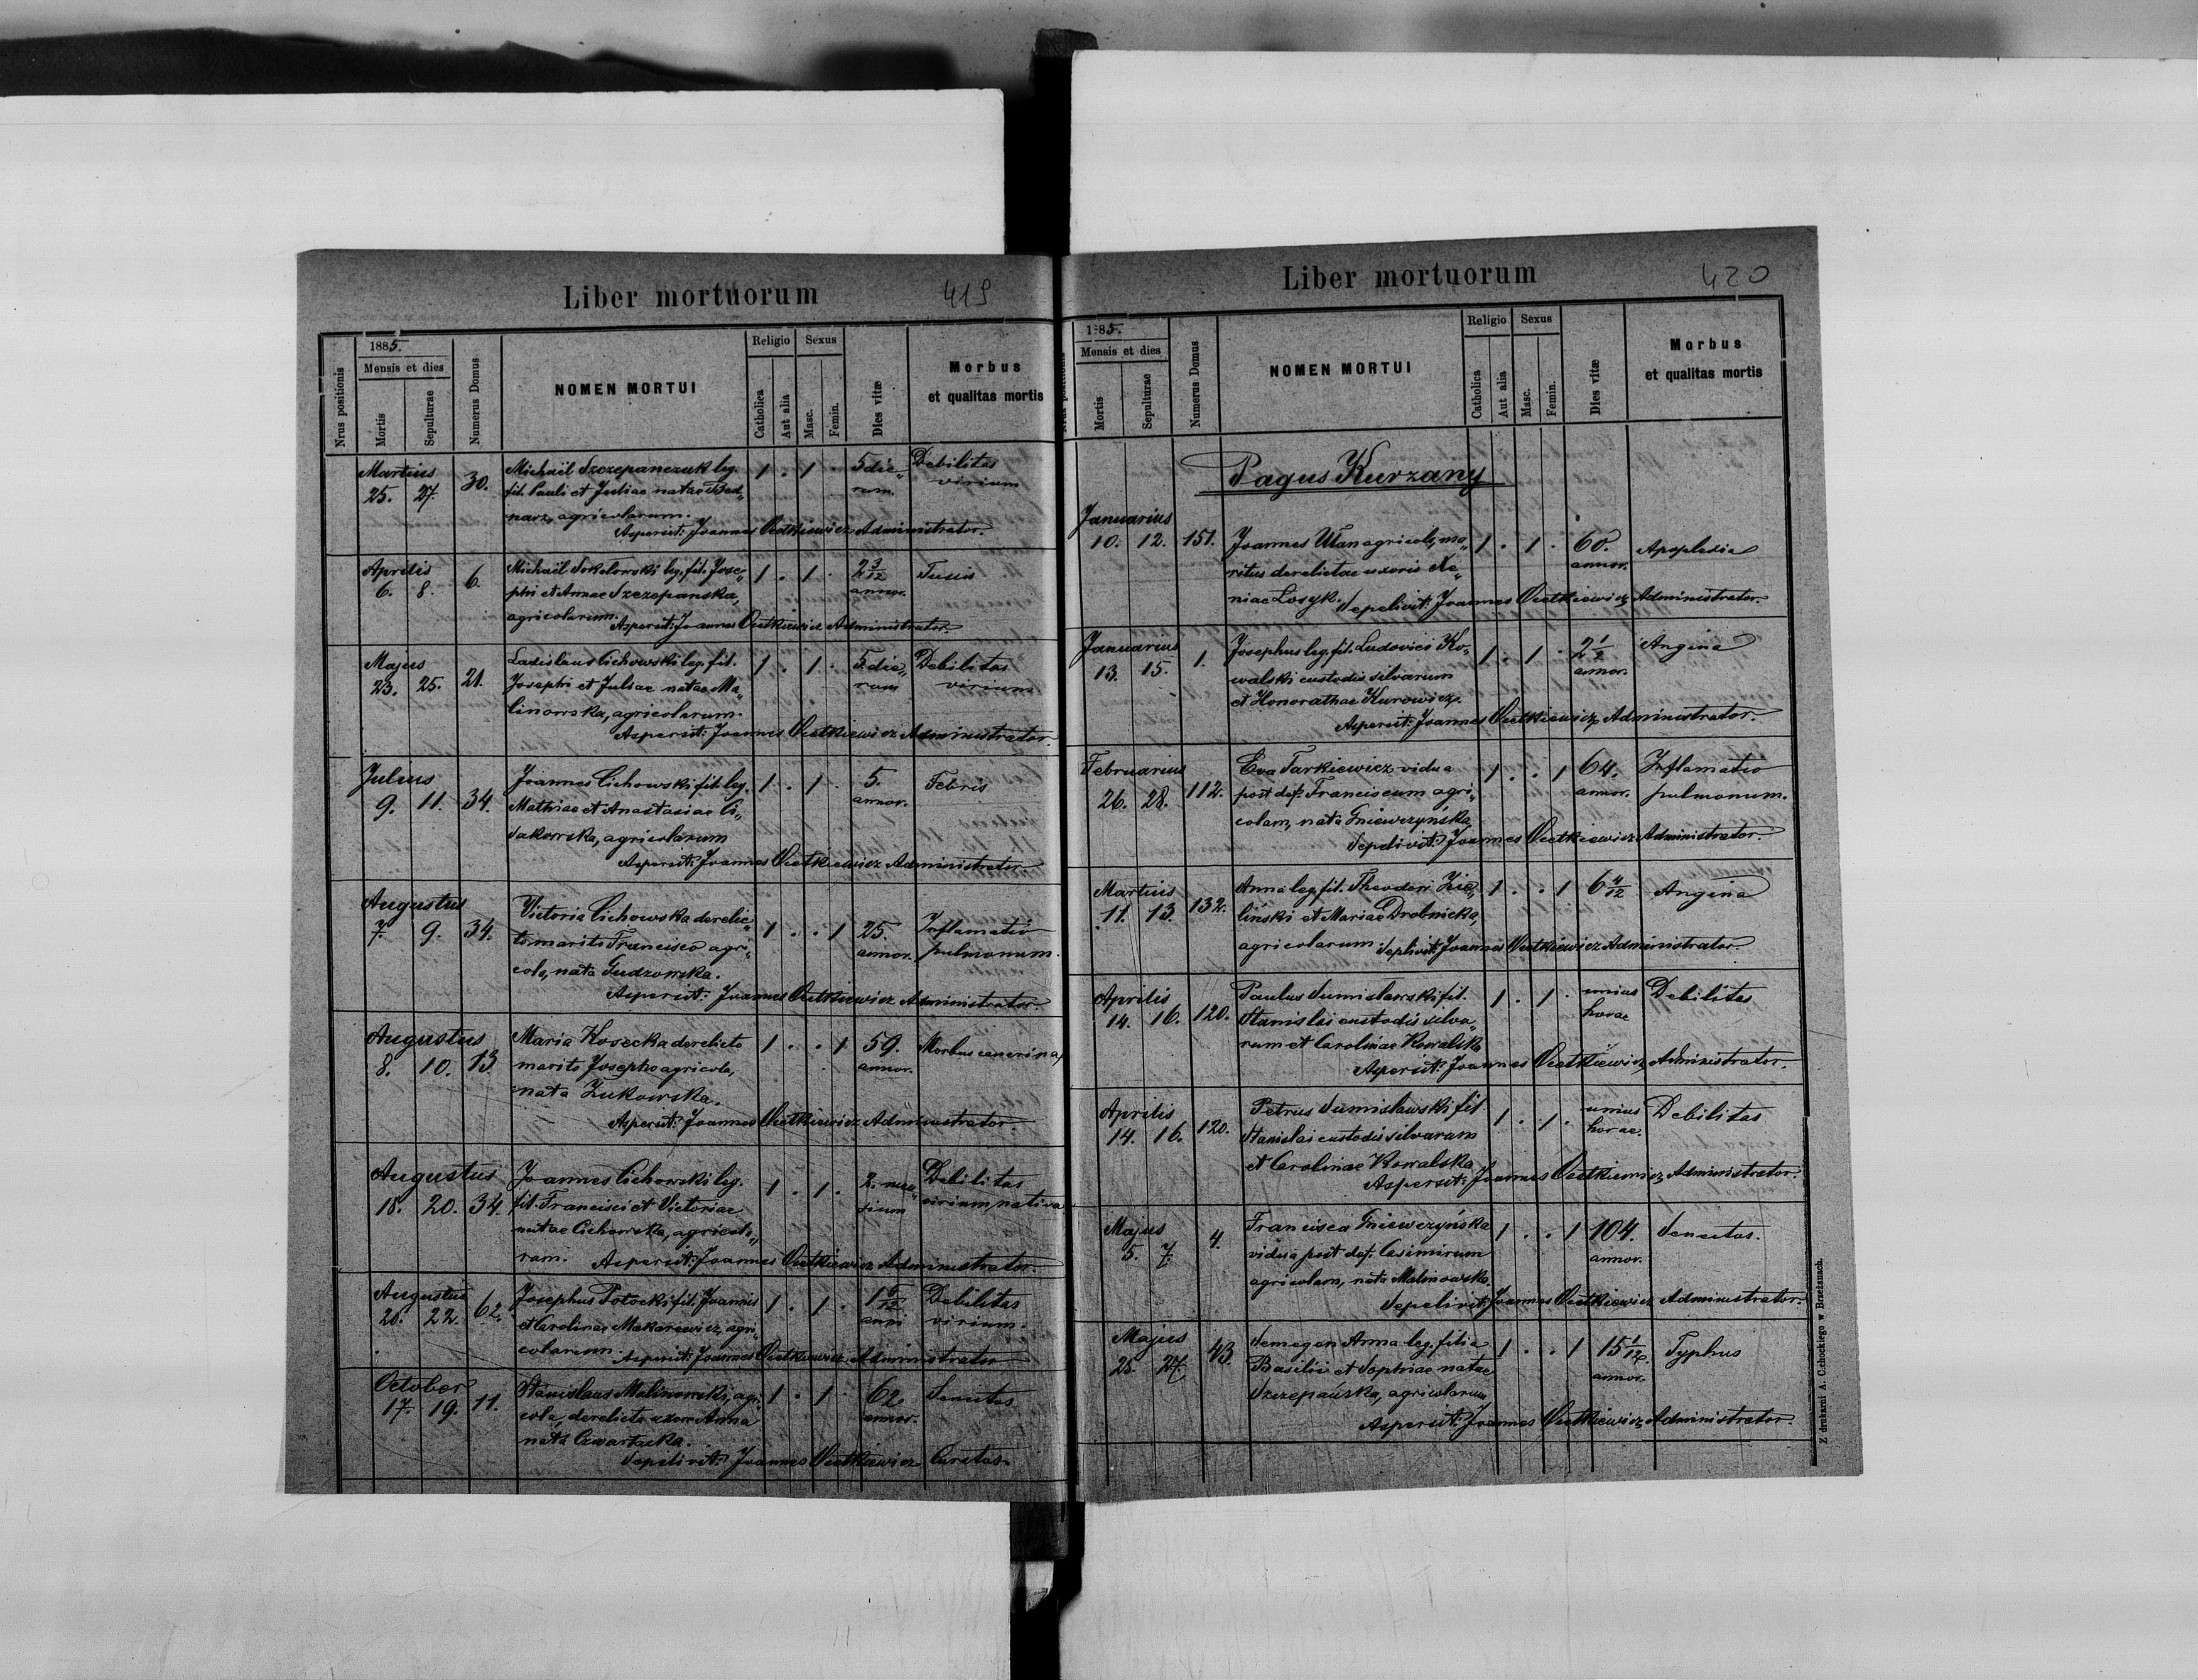 Liber mortuorum 419
Nrus positionis
1885.
Mensis et dies
Mortis
Sepulturae
Numerus Domus
NOMEN MORTUI
Religio
Catholica
Aut alia
Sexus
Masc.
Femin.
Dies vitæ
Morbus
et qualitas mortis
Martius
25. 27. 30. Michaël Szczepanczuk leg. 1 . 1 . 5 die„ Debilitas
fil. Pauli et Juliae natae Bed„ rum. virium
narz, agricolarum.
Aspersit: Joannes Wietkiewicz Administrator.
Aprilis
6. 8. 6. Michaël Sokolowski leg. fil. Jose„ 1 . 1 . 2 3/12 Tussis
phi et Annae Szczepanska, annor.
agricolarum. Aspersit: Joannes Wietkiewicz Administrator.
Majus
23. 25. 21. Ladislaus Cichowski leg. fil. 1 . 1 . 5 die„ Debilitas
Josephi et Juliae natae Ma„ rum virium
linowska, agricolarum.
Aspersit: Joannes Wietkiewicz Administrator.
Julius
9. 11. 34. Joannes Cichowski fil. leg. 1 . 1 . 5. Febris
Mathiae et Anastasiae annor.
agricolarum
Aspersit: Joannes Wietkiewicz Administrator
Augustus
7. 9. 34. Victoria Cichowska derelic„ 1 . . 1 25. Inflamatio
to marito Francisco agri„ annor. pulmonum.
cola, nata Gudzowska.
Aspersit: Joannes Wietkiewicz Administrator
Augustus
8. 10. 13 Maria Kosecka derelicto 1 . . 1 59. Morbus
marito Josepho agricola, annor.
nata Zukowska.
Aspersit: Joannes Wietkiewicz Administrator.
Augustus
18. 20. 34. Joannes Cichowski leg. 1 . 1 . 2. men„ Debilitas
fil. Francisci et Victoriae sium virium nativa
natae Cichowska, agricola„
rum. Aspersit: Joannes Wietkiewicz Administrator
Augustus
20. 22. 62. Josephus Potocki fil. Joannis 1 . 1 . Debilitas
et Carolinae Makarewicz, agri„ anni virium.
colarum. Aspersit: Joannes Wietkiewicz Administrator
October
17. 19. 11. Stanislaus Malinowski, agri„ 1 . 1 . 62 Senectus
cola, derelicta uxore Anna annor.
nata Czwartacka.
Sepelivit: Joannes Wietkiewicz Curatus.
Liber mortuorum 420
1885.
Mensis et dies
Mortis
Sepulturae
Numerus Domus
NOMEN MORTUI
Religio
Catholica
Aut alia
Sexus
Masc.
Femin.
Dies vitæ
Morbus
et qualitas mortis
Pagus Kurzany
Januarius
10. 12. 151. Joannes Ulan agricola, ma„ 1 . 1 . 60. Apoplexia
ritus derelictae uxoris annor.
Losyk. Sepelivit: Joannes Wietkiewicz Administrator.
Januarius
13. 15. 1. Josephus leg. fil. Ludovici Ko„ 1 . 1 . 2 1/2 Angina
walski custodis silvarum annor.
et Honorathae Kurowicz.
Aspersit: Joannes Wietkiewicz Administrator.
Februarius
26. 28. 112. Eva Tarkiewicz vidua 1 . . 1 64. Inflamatio
post def: Franciscum agri„ annor. pulmonum.
colam, nata Gniewczyńska
Sepelivit: Joannes Wietkiewicz Administrator.
Martius
11. 13. 132. Anna leg. fil. Theodori Zie„ 1 . . 1 6 4/12 Angina
liński et Mariae Drobnicka,
agricolarum. Seplivit: Joannes Wietkiewicz Administrator.
Aprilis
14. 16. 120. Paulus Sumislawski fil. 1 . 1 . unius Debilitas
Stanislai custodis silva„ horae
rum et Carolinae Kowalska
Aspersit: Joannes Wietkiewicz Administrator.
Aprilis
14. 16. 120. Petrus Sumislawski fil. 1 . 1 . unius Debilitas
Stanislai custodis silvarum horae.
et Carolinae Kowalska
Aspersit: Joannes Wietkiewicz Administrator.
Majus
5. 7. 4. Francisca Gniewczyńska 1 . . 1 104. Senectus.
vidua post def. Casimirum annor.
agricolam, nata Malinowska.
Sepelivit: Joannes Wietkiewicz Administrator.
Majus
25. 27. 43. Semegen Anna leg. filia 1 . . 1 15 1/12. Typhus
Basilii et Sophiae natae annor.
Szczepańska, agricolarum
Aspersit: Joannes Wietkiewicz Administrator
Z drukarni A. Czchockiego w Brzeżanach.